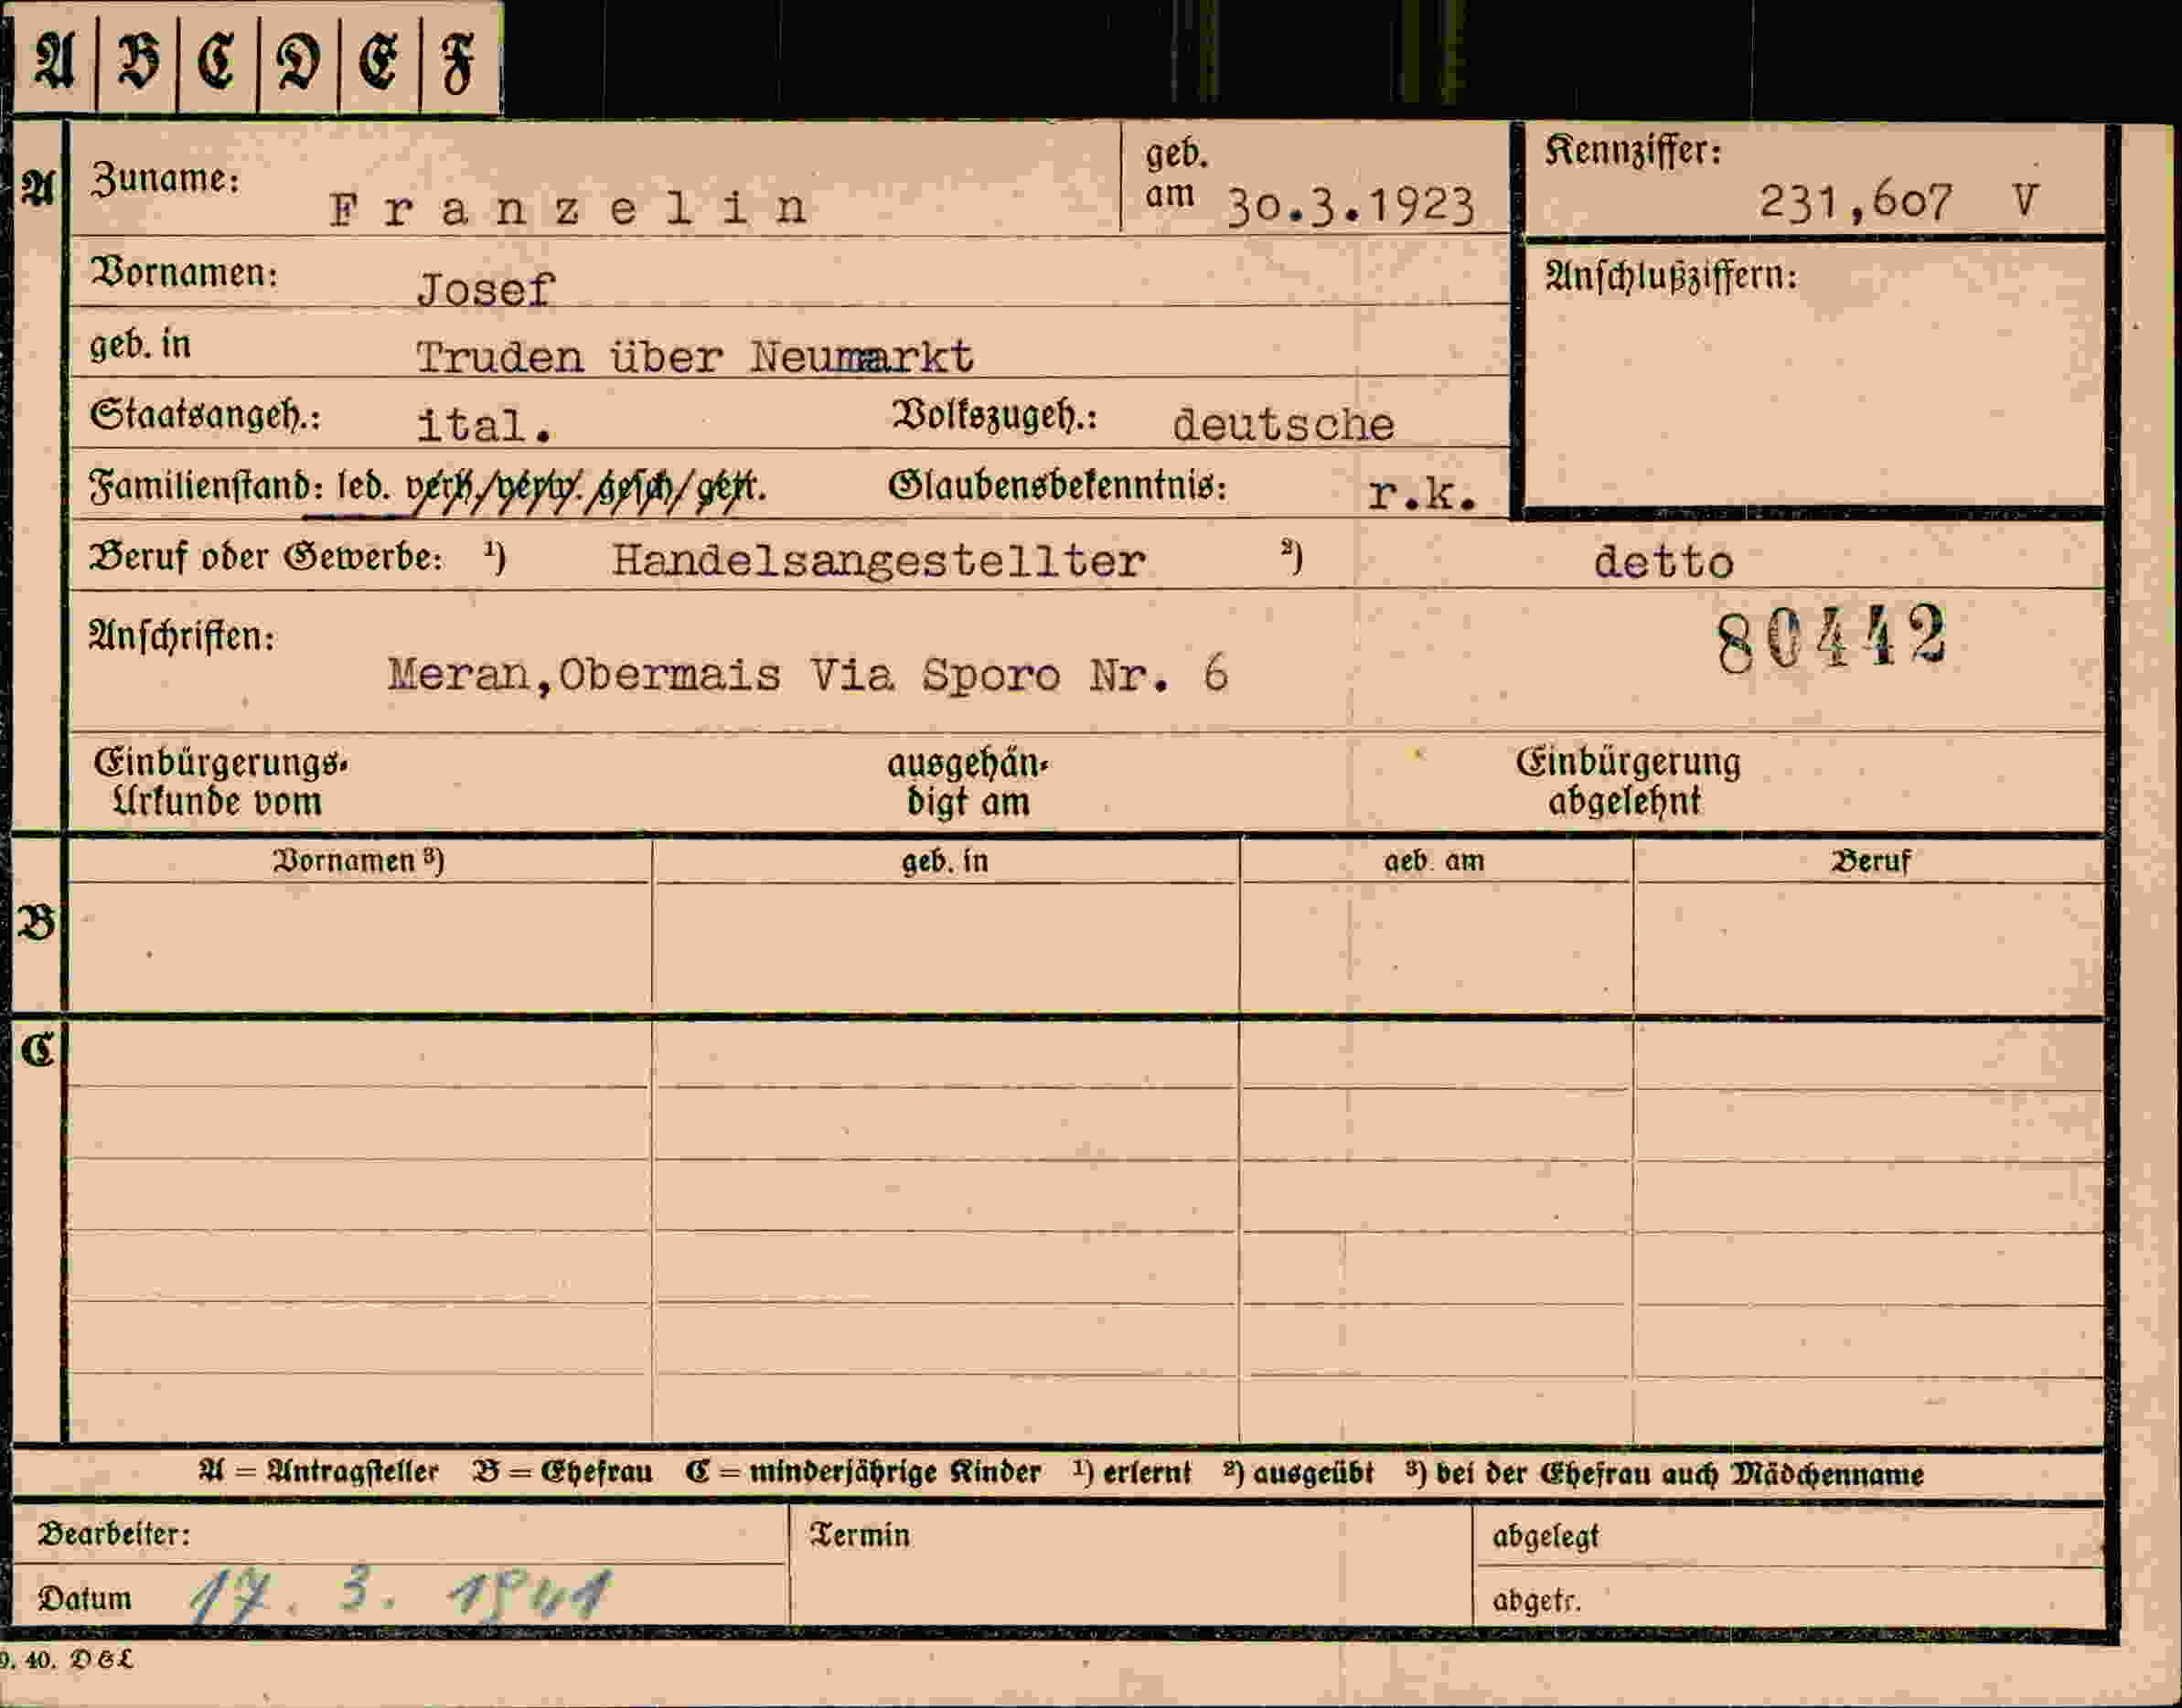 A B C D E F
A
Zuname: Franzelin
geb. am 30.3.1923
Kennziffer: 231,607 V
Vornamen: Josef
Anschlußziffern:
geb. in Truden über Neumarkt
Staatsangeh.: ital. Volkszugeh.: deutsche
Familienstand: led. verh./verw./gesch/getr. Glaubensbekenntnis: r.k.
Beruf oder Gewerbe: ¹) Handelsangestellter ²) detto
80442
Anschriften: Meran,Obermais Via Sporo Nr. 6
Einbürgerungs-
Urkunde vom
ausgehän-
digt am
Einbürgerung
abgelehnt
B
Vornamen ³) geb. in geb. am Beruf
C
A = Antragsteller B = Ehefrau C = minderjährige Kinder ¹) erlernt ²) ausgeübt ³) bei der Ehefrau auch Mädchenname
Bearbeiter: Termin abgelegt
Datum 17. 3. 1941 abgetr.
9. 40. D&L